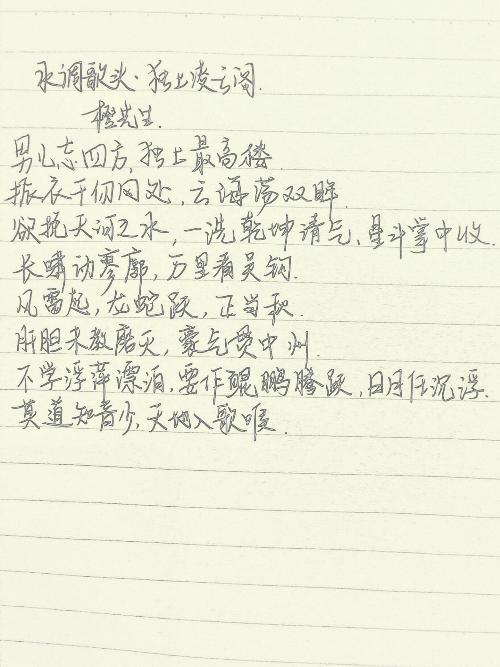 水调歌头·独上凌云阁.
橙先生.
男儿志四方,独上最高楼.
振衣千仞冈处,云海荡双眸.
欲挽天河之水,一洗乾坤清气,星斗掌中收.
长啸动寥廓,万里看吴钩.
风雷起,龙蛇跃,正当秋.
肝胆未教磨灭,豪气贯中州.
不学浮萍漂泊,要作鲲鹏腾跃,日月任沉浮.
莫道知音少,天地入歌喉.